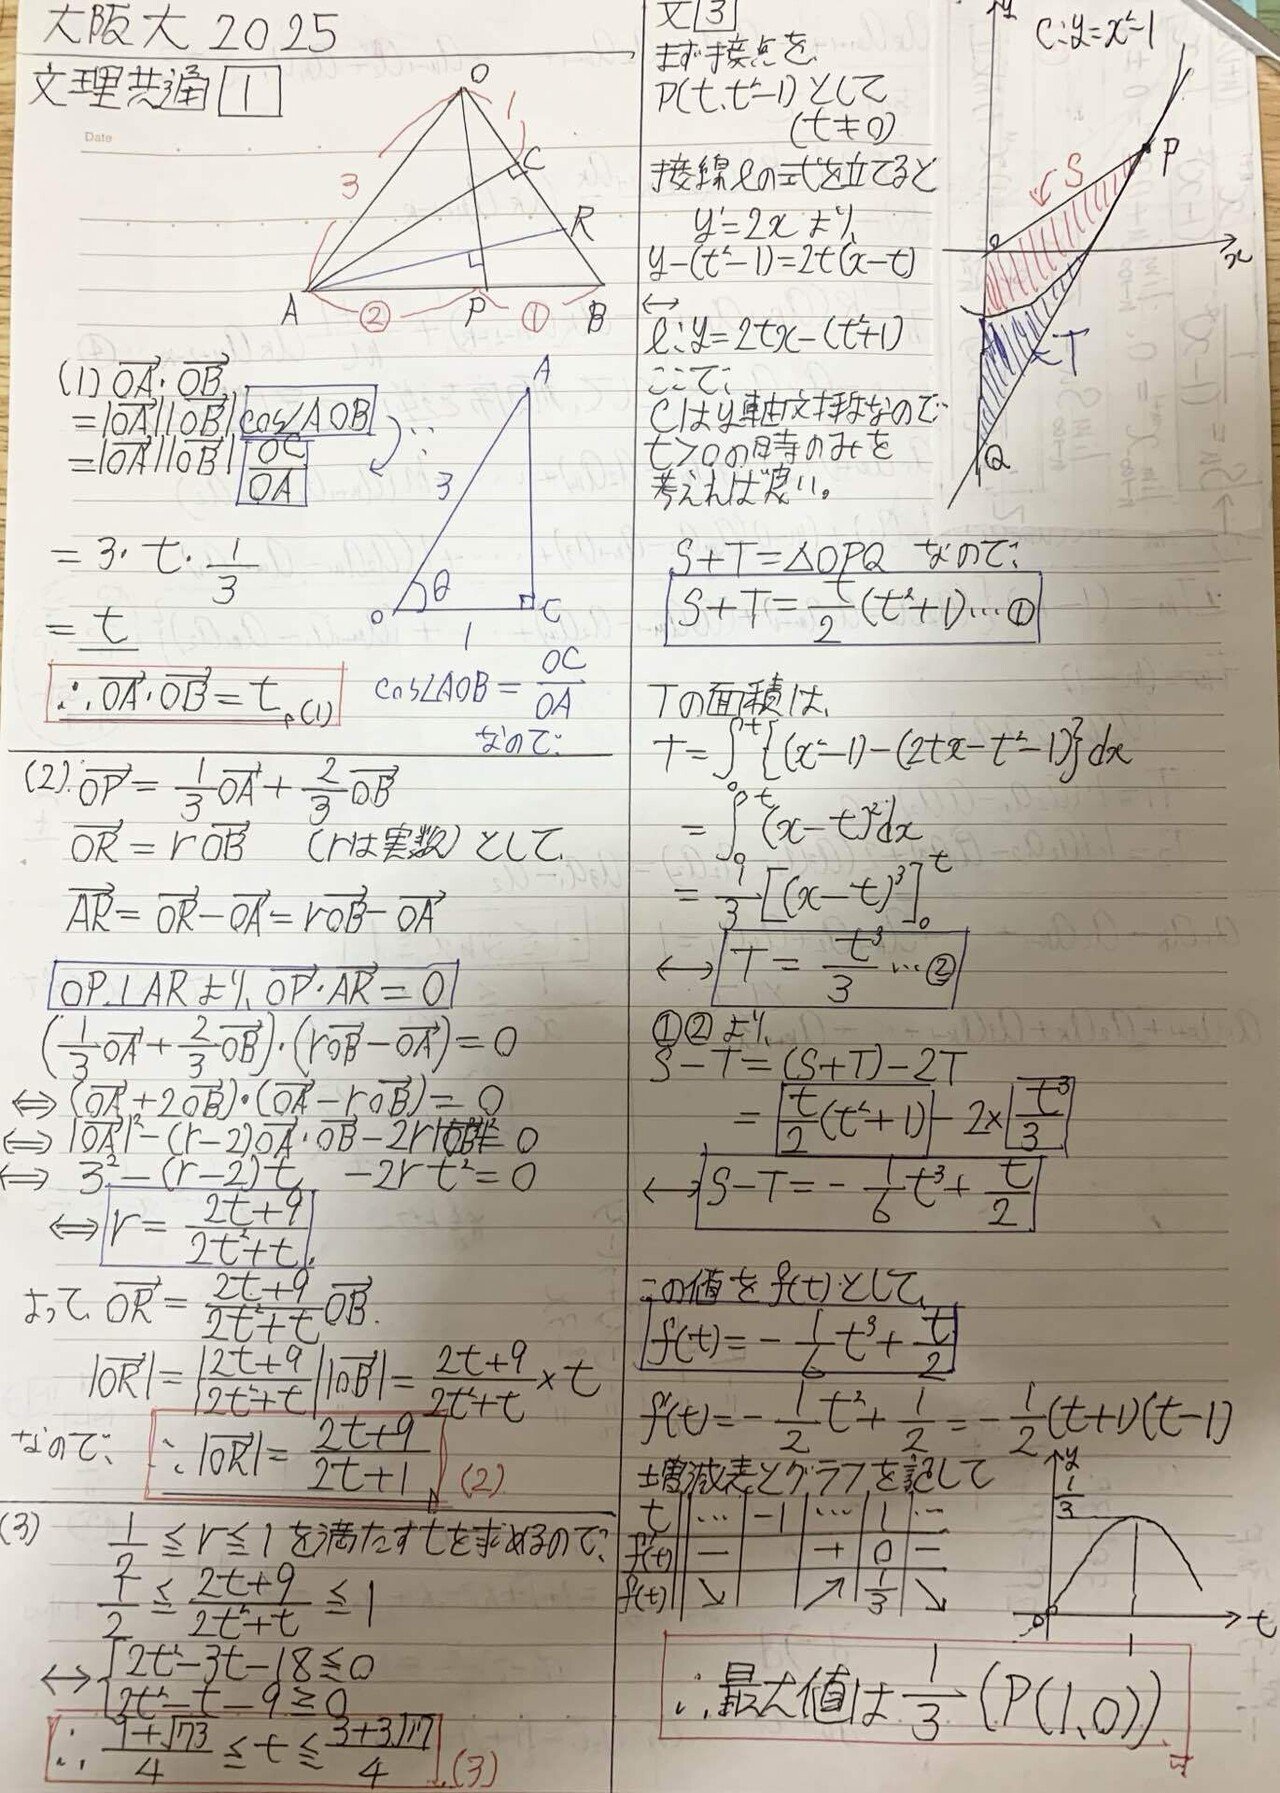 大阪大2025
文理共通 1
Date
O
1
3
C
R
A
②
P
①
B
(1) OA・OB
=|OA||OB|cos∠AOB
=|OA||OB| OC/OA
= 3・t・1/3
= t
∴OA・OB=t (1)
A
3
θ
O
C
1
cos∠AOB=OC/OA
なので
(2) OP=1/3 OA+2/3 OB
OR=rOB (rは実数)として
AR=OR-OA=rOB-OA
OP⊥ARより、OP・AR=0
(1/3 OA+2/3 OB)・(rOB-OA)=0
⇔(OA+2OB)・(OA-rOB)=0
⇔|OA|²-(r-2)OA・OB-2r|OB|²=0
⇔ 3²-(r-2)t -2rt²=0
⇔ r=(2t+9)/(2t²+t)
よって OR=(2t+9)/(2t²+t) OB.
|OR|=|(2t+9)/(2t²+t)||OB|=(2t+9)/(2t²+t)×t
なので ∴|OR|=(2t+9)/(2t+1) (2)
(3) 1/2≦r≦1を満たすtを求めるので
1/2≦(2t+9)/(2t²+t)≦1
↔ 2t²-3t-18≦0
2t²-t-9≧0
∴ (1+√73)/4≦t≦(3+3√17)/4 (3)
文 3
まず接点を
P(t, t²-1)として
(t≠0)
接線ℓの式を立てると
y'=2xより
y-(t²-1)=2t(x-t)
↔
ℓ:y=2tx-(t²+1)
ここで
Cはy軸対称なので
t>0の時のみを
考えれば良い。
y
C:y=x²-1
P
S
O
x
T
Q
S+T=△OPQ なので
S+T=t/2(t²+1)…①
Tの面積は、
T=∫₀ᵗ{(x²-1)-(2tx-t²-1)}dx
=∫₀ᵗ(x-t)²dx
=1/3[(x-t)³]₀ᵗ
↔ T=t³/3…②
①②より
S-T=(S+T)-2T
=t/2(t²+1)-2×t³/3
↔ S-T=-1/6t³+t/2
この値をf(t)として
f(t)=-1/6t³+t/2
f'(t)=-1/2t²+1/2=-1/2(t+1)(t-1)
増減表とグラフを記して
t … -1 … 1 …
f'(t) - + 0 -
f(t) ↘ ↗ 1/3 ↘
y
1/3
O
1
t
∴最大値は1/3(P(1,0))